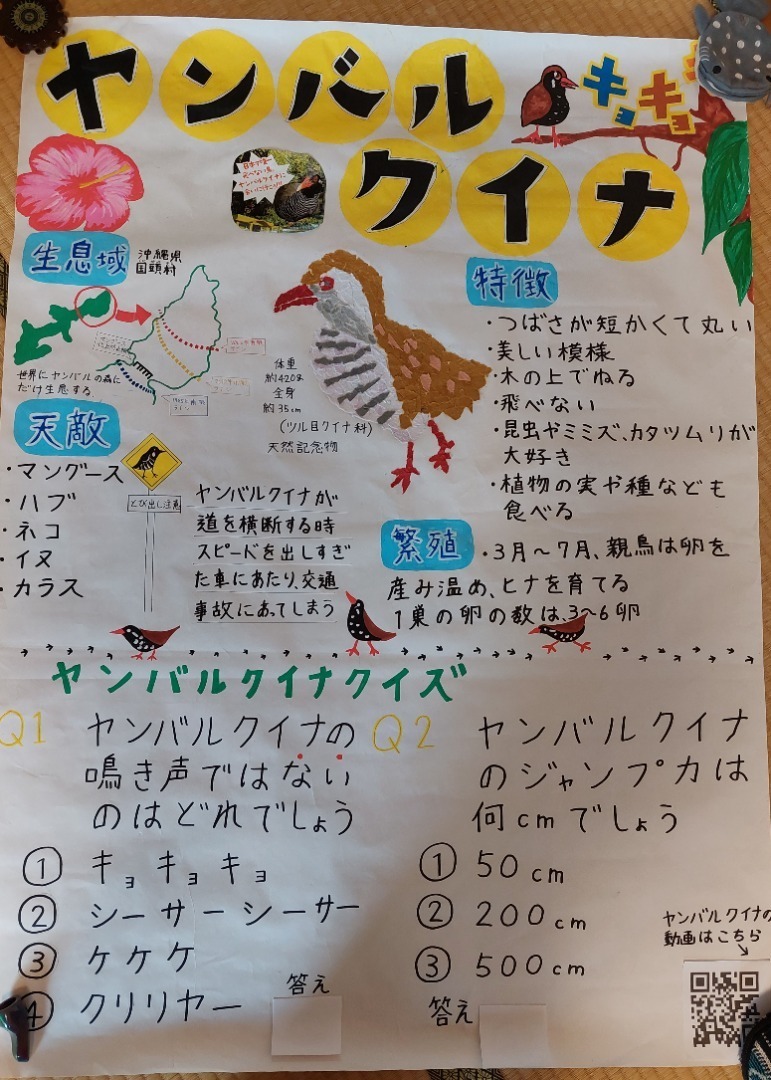 ヤンバル
クイナ
キョキョ
生息域
沖縄県
国頭村
世界にヤンバルの森に
だけ生息する
体重
約420g
全身
約35cm
(ツル目クイナ科)
天然記念物
特徴
・つばさが短かくて丸い
・美しい模様
・木の上でねる
・飛べない
・昆虫やミミズ、カタツムリが
大好き
・植物の実や種なども
食べる
天敵
・マングース
・ハブ
・ネコ
・イヌ
・カラス
とび出し注意
ヤンバルクイナが
道を横断する時
スピードを出しすぎ
た車にあたり、交通
事故にあってしまう
繁殖
・3月〜7月、親鳥は卵を
産み温め、ヒナを育てる
1巣の卵の数は、3〜6卵
ヤンバルクイナクイズ
Q1 ヤンバルクイナの
鳴き声ではない
のはどれでしょう
① キョキョキョ
② シーサーシーサー
③ ケケケ
④ クリリヤー
答え
Q2 ヤンバルクイナ
のジャンプ力は
何cmでしょう
① 50cm
② 200cm
③ 500cm
答え
ヤンバルクイナの
動画はこちら